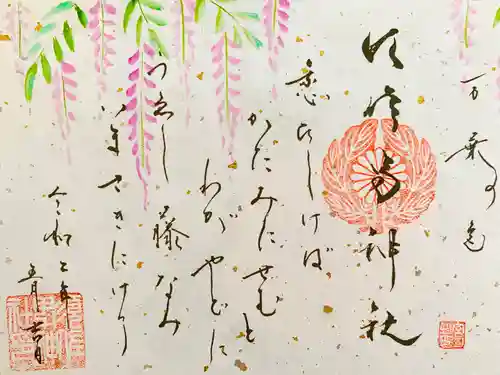 万葉の
神社
恋しけば
かたみにせむと
わがやどに
うゑし藤なみ
いまさきにけり
令和二年
五月吉日